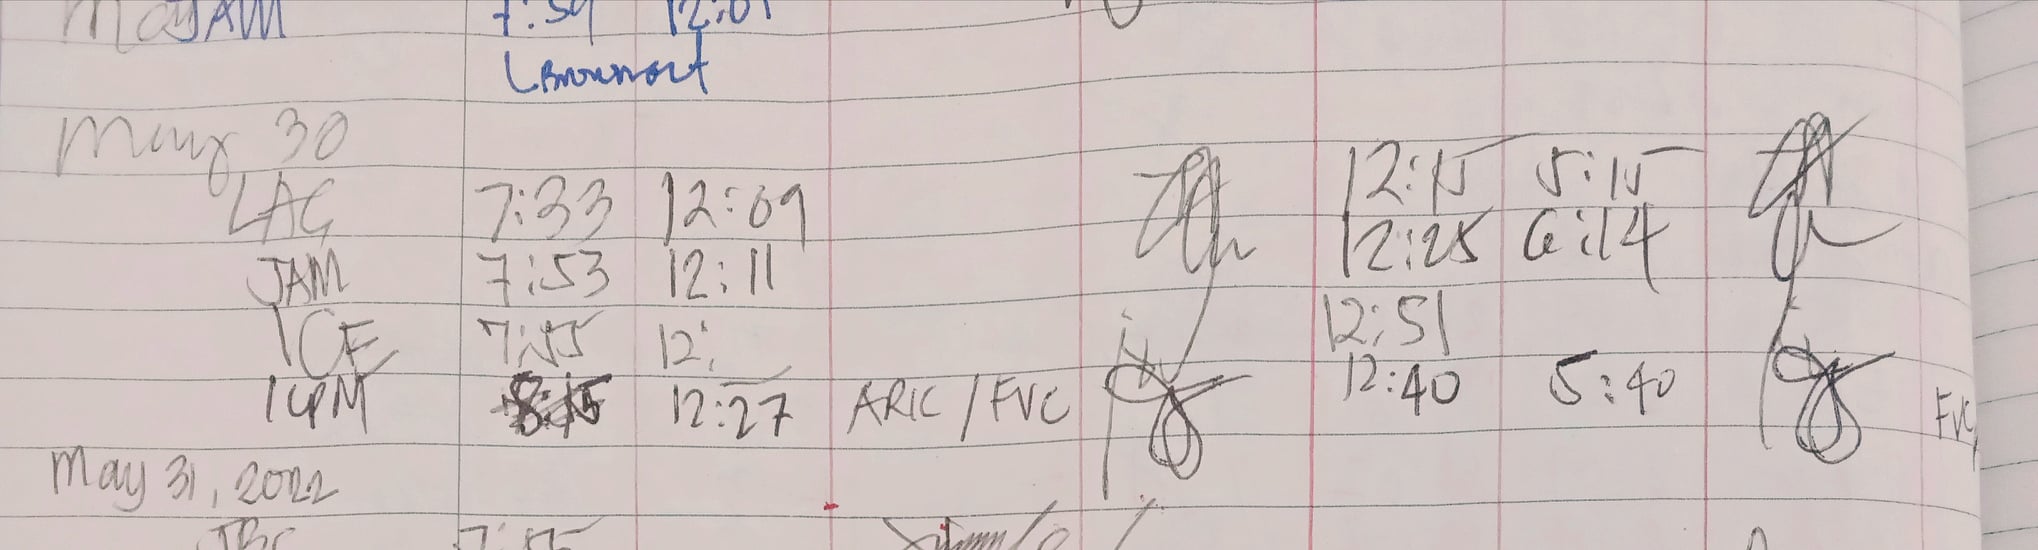 JAM 7:59 12:01
(Brownout
May 30
LAG 7:33 12:09 12:15 5:15
JAM 7:53 12:11 12:25 6:14
ICE 7:55 12: 12:51
8:15 12:27 ARIC / FVC 12:40 5:40 FVC
May 31, 2022